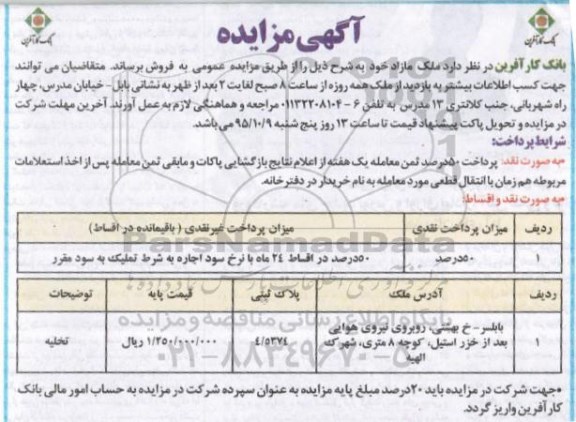 آگهی مزایده
بانک کارآفرین
بانک کارآفرین
بانک کارآفرین در نظر دارد ملک مازاد خود به شرح ذیل را از طریق مزایده عمومی به فروش برساند. متقاضیان می توانند
جهت کسب اطلاعات بیشتر به بازدید از ملک همه روزه از ساعت ۸ صبح لغایت ۲ بعد از ظهر به نشانی بابل- خیابان مدرس، چهار
راه شهربانی، جنب کلانتری ۱۳ مدرس به تلفن ۶ - ۰۱۱۳۲۲۰۸۱۰۴ مراجعه و هماهنگی لازم به عمل آورند. آخرین مهلت شرکت
در مزایده و تحویل پاکت پیشنهاد قیمت تا ساعت ۱۳ روز پنج شنبه ۹۵/۱۰/۹ می باشد.
شرایط پرداخت:
•به صورت نقد: پرداخت ۵۰درصد ثمن معامله یک هفته از اعلام نتایج بازگشایی پاکات و مابقی ثمن معامله پس از اخذ استعلامات
مربوطه هم زمان با انتقال قطعی مورد معامله به نام خریدار در دفترخانه.
•به صورت نقد و اقساط:
ردیف میزان پرداخت نقدی میزان پرداخت غیرنقدی ( باقیمانده در اقساط)
۱ ۵۰درصد ۵۰درصد در اقساط ۲۴ ماه با نرخ سود اجاره به شرط تملیک به سود مقرر
ردیف آدرس ملک پلاک ثبتی قیمت پایه توضیحات
بابلسر- خ بهشتی، روبروی نیروی هوایی
۱ بعد از خزر استیل، کوچه ۸ متری، شهرک ۴/۵۳۷۴ ۱/۲۵۰/۰۰۰/۰۰۰ ریال تخلیه
الهیه
•جهت شرکت در مزایده باید ۲۰درصد مبلغ پایه مزایده به عنوان سپرده شرکت در مزایده به حساب امور مالی بانک
کارآفرین واریز گردد.
ParsNamadData
پایگاه اطلاع رسانی مناقصه و مزایده
۰۲۱-۸۸۳۴۹۶۷۰-۵